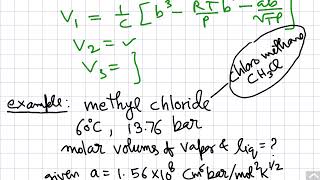 V₁ = 1/C [ b³ - RT/P b² - ab/√T P
V₂ = ✓
V₃ = ]
chloro methane
CH₃Cl
example: methyl chloride
60°C, 13.76 bar
molar volumes of vapor & liq = ?
given a = 1.56 x10⁸ cm⁶ bar/mol² K^1/2